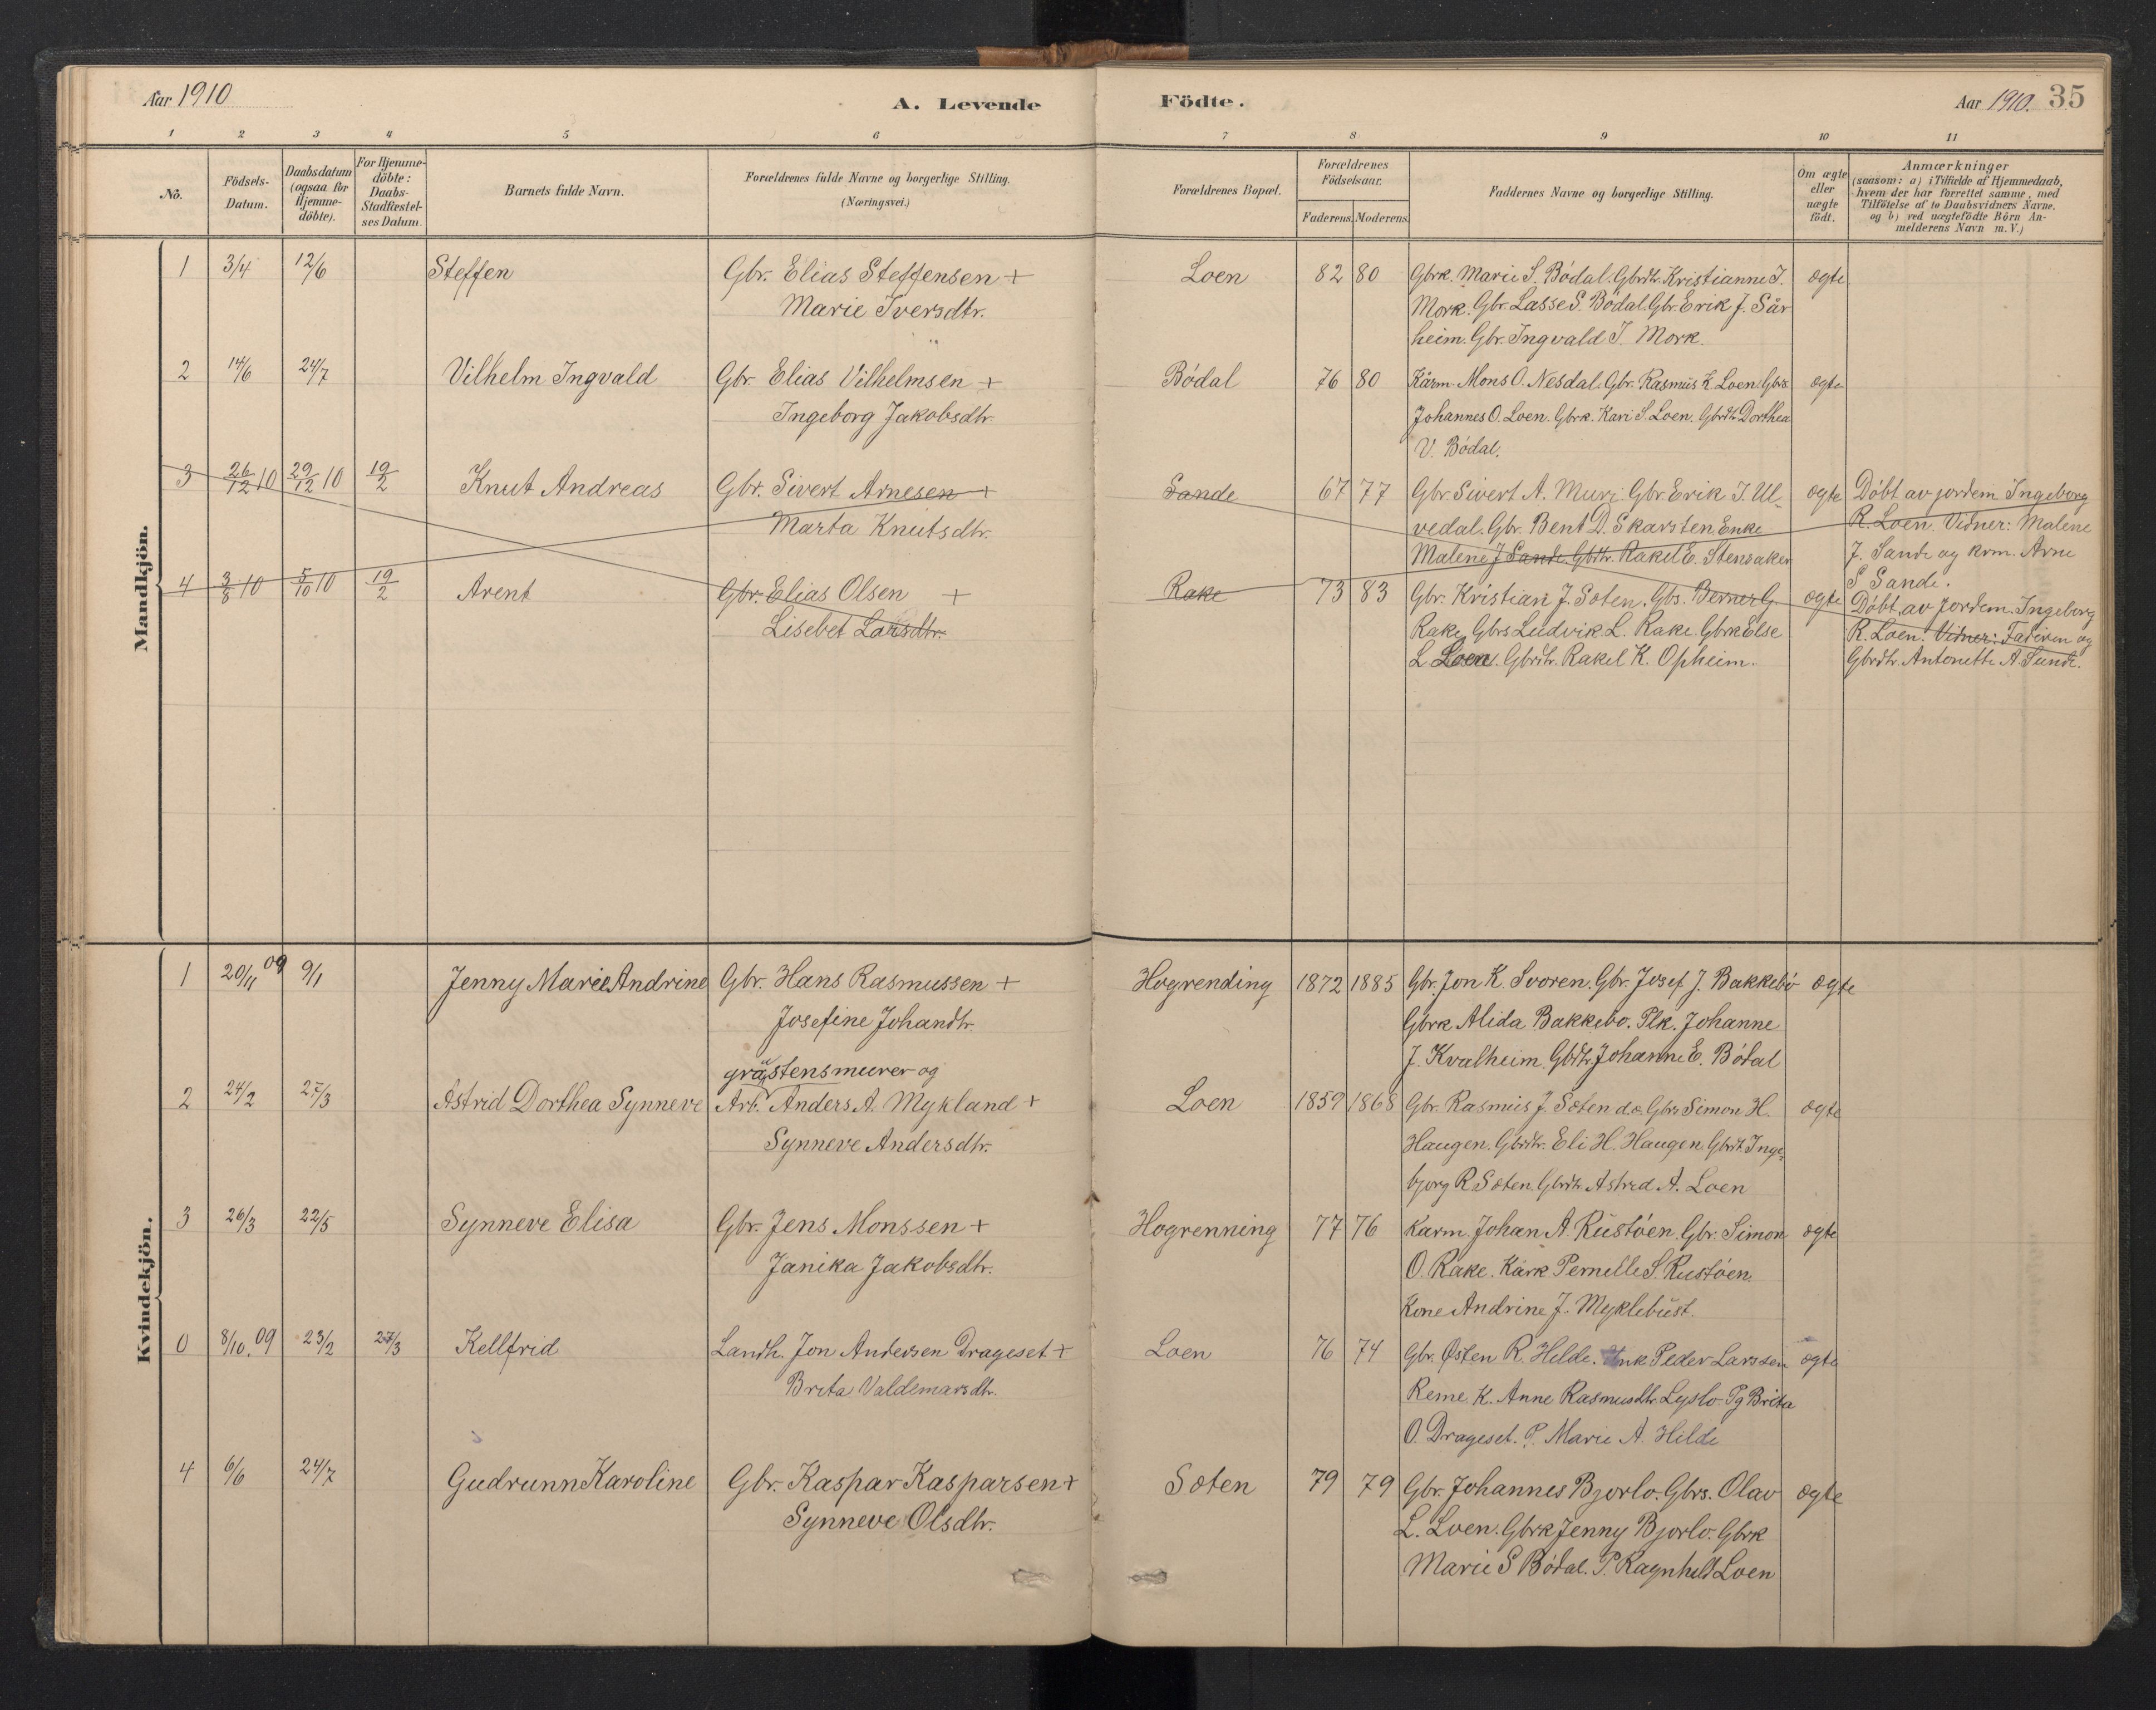 Aar 1910
A. Levende
Födte.
Aar 1910. 35
1 2 3 4 5 6 7 8 9 10 11
No.
Födsels-Datum.
Daabsdatum (ogsaa for Hjemme-döbte).
For Hjemme-döbte: Daabs-Stadfæstel-ses Datum.
Barnets fulde Navn.
Forældrenes fulde Navne og borgerlige Stilling.
(Næringsvei.)
Forældrenes Bopæl.
Forældrenes Födselsaar.
Faderens. Moderens.
Faddernes Navne og borgerlige Stilling.
Om ægte eller uægte födt.
Anmærkninger
(saasom: a) i Tilfælde af Hjemmedaab,
hvem der har forrettet samme, med
Tilföielse af to Daabsvidners Navne.
og b) ved uægtefödte Börn An-
melderens Navn m.V.)
Mandkjön.
1 3/4 12/6 Steffen Gbr. Elias Steffensen + Loen 82 80 Gbrk. Marie S. Bödal. Gbrdtr. Kristianne I. ægte
Marie Iversdtr. Mork. Gbr. Lasse S. Bödal. Gbr. Erik J. Sår
heim. Gbr. Ingvald I. Mork.
2 14/6 24/7 Vilhelm Ingvald Gbr. Elias Vilhelmsen + Bödal 76 80 Kårm. Mons O. Nesdal. Gbr. Rasmus K. Loen. Gbrs. ægte
Ingeborg Jakobsdtr. Johannes O. Loen. Gbrk. Kari S. Loen. Gbrdtr. Dorthea
V. Bödal.
3 26/12 10 29/12 10 19/2 Knut Andreas Gbr. Sivert Arnesen + Sande 67 77 Gbr. Sivert A. Muri Gbr. Erik I. Ul- ægte Döbt av jordem. Ingeborg
Marta Knutsdtr. vedal. Gbr. Bent D. Skarsten Enke R. Loen. Vidner: Malene
Malene J Sande. Gbdtr. Rakel E. Stensaker J. Sande og krm. Arne
S Sande.
4 3/8 10 5/10 10 19/2 Arent Gbr. Elias Olsen + Rake 73 83 Gbr. Kristian J. Soten. Gbs. Berner G. ægte Döbt av Jordem. Ingeborg
Lisebet Larsdtr. Rake. Gbrs Ludvik L. Rake. Gbrk Else R. Loen. Vidner: Faderen og
L Loen. Gbrdtr. Rakel K. Opheim. Gbrdtr. Antonette A. Sunde.
Kvindekjön.
1 20/11 09 9/1 Jenny Marie Andrine Gbr. Hans Rasmussen + Hogrending 1872 1885 Gbr. Jon K. Svoren. Gbr. Josef J. Bakkebö ægte
Josefine Johandtr. Gbrk Alida Bakkebo. Plk. Johanne
J. Kvalheim. Gbdtr. Johanne E. Bödal
gråstensmurer og
2 24/2 27/3 Astrid Dorthea Synneve Arb. Anders A. Mykland + Loen 1859 1868 Gbr. Rasmus J. Soten d.o. Gbrs Simon H. ægte
Synneve Andersdtr. Haugen. Gbrdtr. Eli H. Haugen. Gbrdt. Inge-
bjorg R. Soten. Gbrdtr Astrid A. Loen
3 26/3 22/5 Synneve Elisa Gbr. Jens Monssen + Hogrenning 77 76 Karm. Johan A. Rustöen. Gbr. Simon ægte
Janika Jakobsdtr. O. Rake. Kårk Pernelle S. Rustöen.
Kone Andrine J. Myklebust.
0 8/10. 09 23/2 27/3 Kellfrid Landh. Jon Andersen Drageset + Loen 76 74 Gbr. Østen R. Hilde. Peder Larssen ægte
Brita Valdemarsdtr. Reme K. Anne Rasmusdtr. Lyslo. Pg Brita
O. Drageset. P. Marie A. Hilde
4 6/6 24/7 Gudrunn Karoline Gbr. Kaspar Kasparsen + Soten 79 79 Gbr. Johannes Bjorlo. Gbrs. Olav ægte
Synneve Olsdtr. L. Loen. Gbrk Jenny Bjorlo. Gbrk
Marie S Bödal. P. Ragnhild Loen